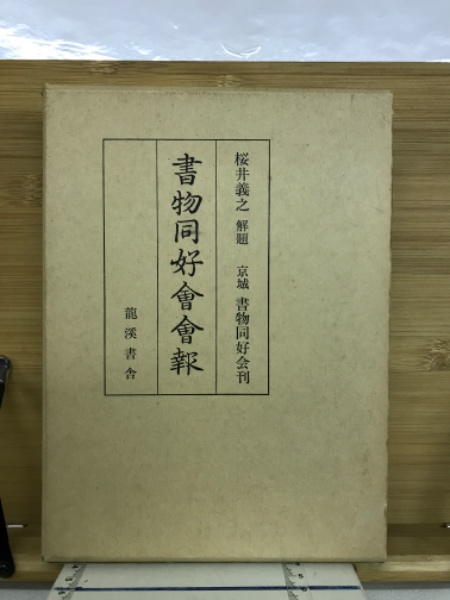 桜井義之 解題 京城 書物同好会刊
書物同好會會報
龍溪書舎